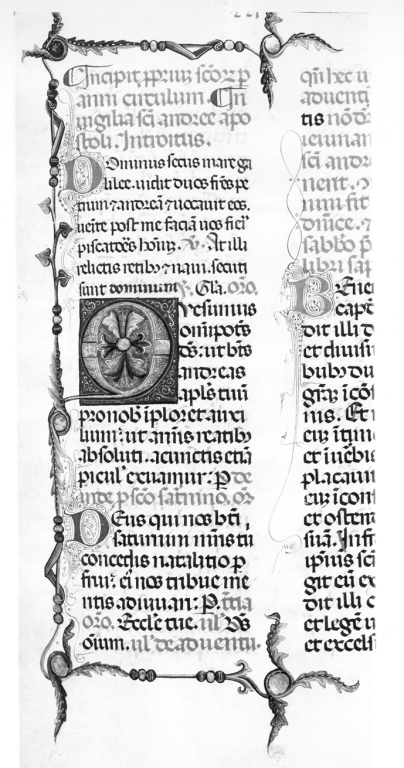 Incipit ꝓpriũ scõrz p
anni circulum. In
uigilia sci andree apo
stoli. Introitus.
Dominus secus mare ga
lilee uidit duos fr̃es pe
trum ⁊ andreã ⁊ uocauit eos.
uenite post me faciã uos fieri
piscatores hoĩuz. Ps. At illi
relictis retibꝫ ⁊ naui. secuti
sunt dominum. Gla. oro.
Qvesumus
omnipotẽs
dẽs: ut btũs
andreas
apl̃s tuũ
pro nob̃ ĩplor et auxi
lium: ut añis reatibꝫ
absoluti. a cunctis etiã
piculꝭ exuamur: P
ante p scõ satnino. or̃
DEus qui nos bti
saturnini mr̃is tui
concedis natalitio p
frui: ei nos tribue me
ritis adiuuari: P. t̃tia
oro. Eccl̃e tue. ul̃ Ds
oĩum. ul̃ de aduentu.
qñ hec u
aduenti
tis nõ d
ieiunan
sci andr
nerit.
num fit
dñice.
sabbo p
libri sap
BEnei
dit illi d
et diuisi
bubꝫ du
nis. Et
placauit
et osten
suã. In ft
ipsius
git eũ ex
dit illi c
et legẽ u
et excels